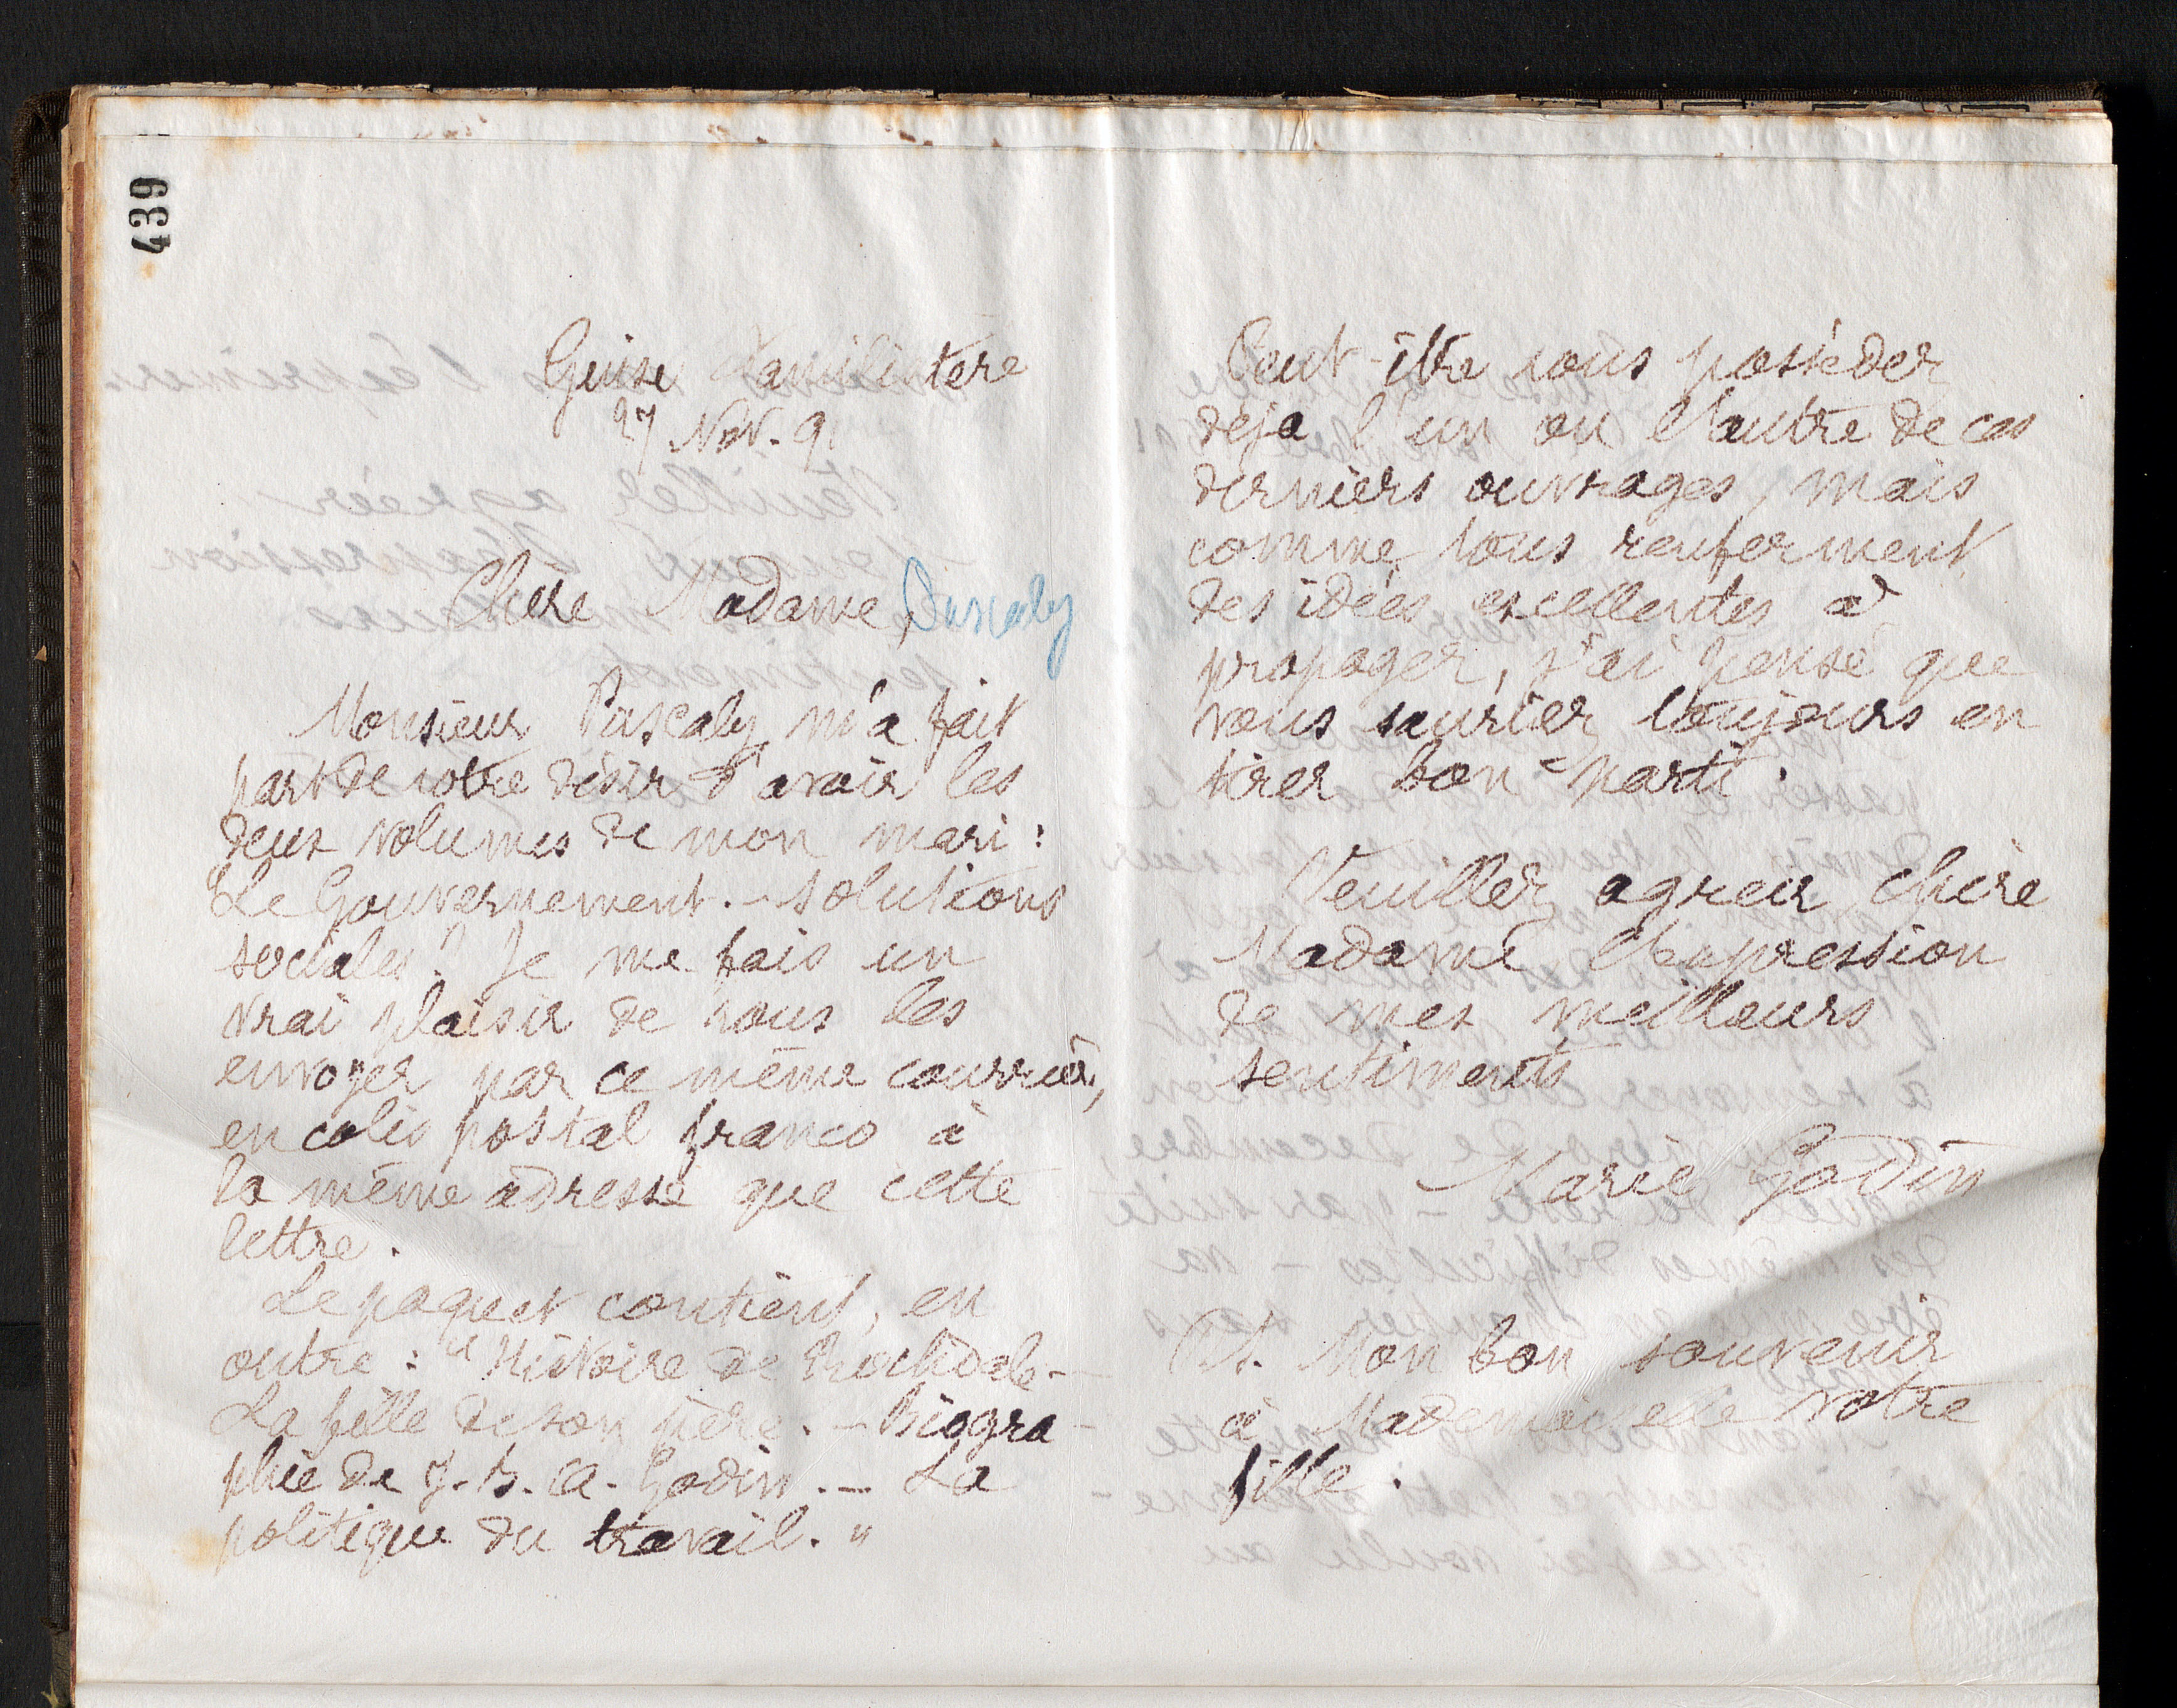 439
Guise Familistère
27 Nov. 91
Chère Madame, Pascaly
Monsieur Pascaly m'a fait
part de votre désir d'avoir les
deux volumes de mon mari :
"Le Gouvernement. – Solutions
sociales." Je me fais un
vrai plaisir de vous les
envoyer par ce même courrier,
en colis postal franco à
la même adresse que cette
lettre.
Le paquet contient, en
outre : "Histoire de Rochdale –
La fille de son père. – Biogra-
phie de J. B. A. Godin. – La
politique du travail."
Peut-être vous possédez
déjà l'un ou l'autre de ces
derniers ouvrages, mais
comme tous renferment
des idées excellentes à
propager, j'ai pensé que
vous sauriez toujours en
tirer bon parti.
Veuillez agréer, chère
Madame, l'expression
de mes meilleurs
sentiments
Marie Godin
P.S. Mon bon souvenir
à Mademoiselle votre
fille.